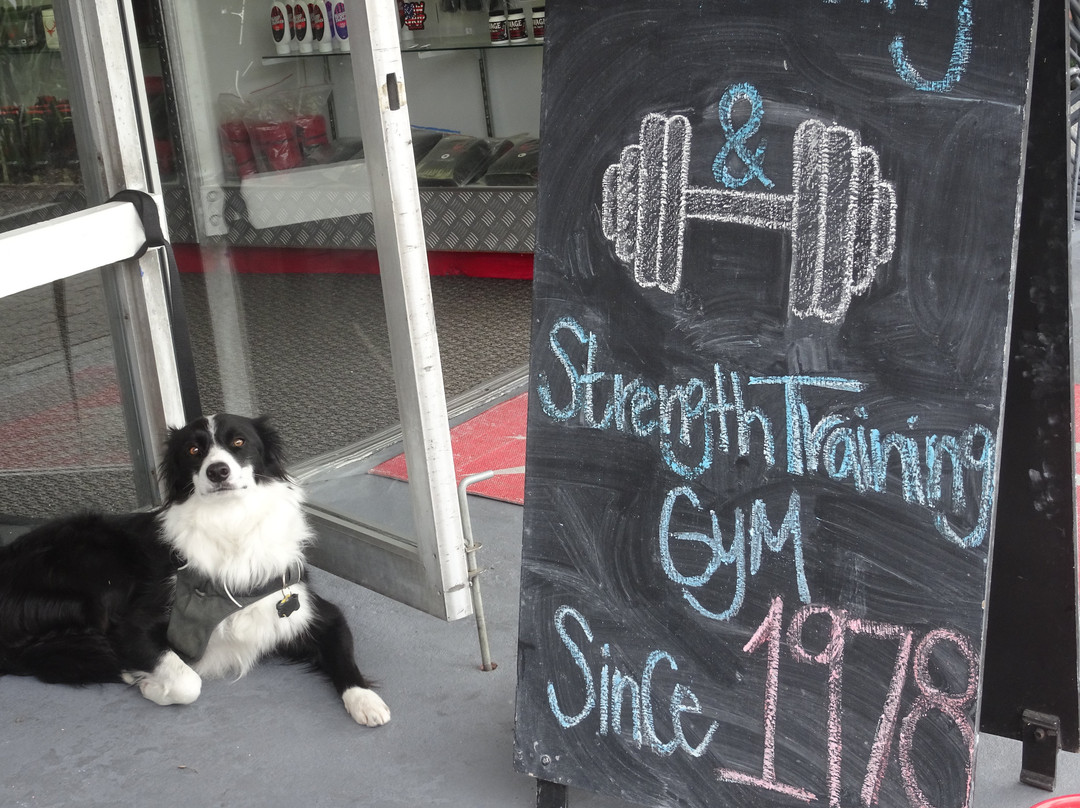 &
Strength Training
Gym
Since 1978